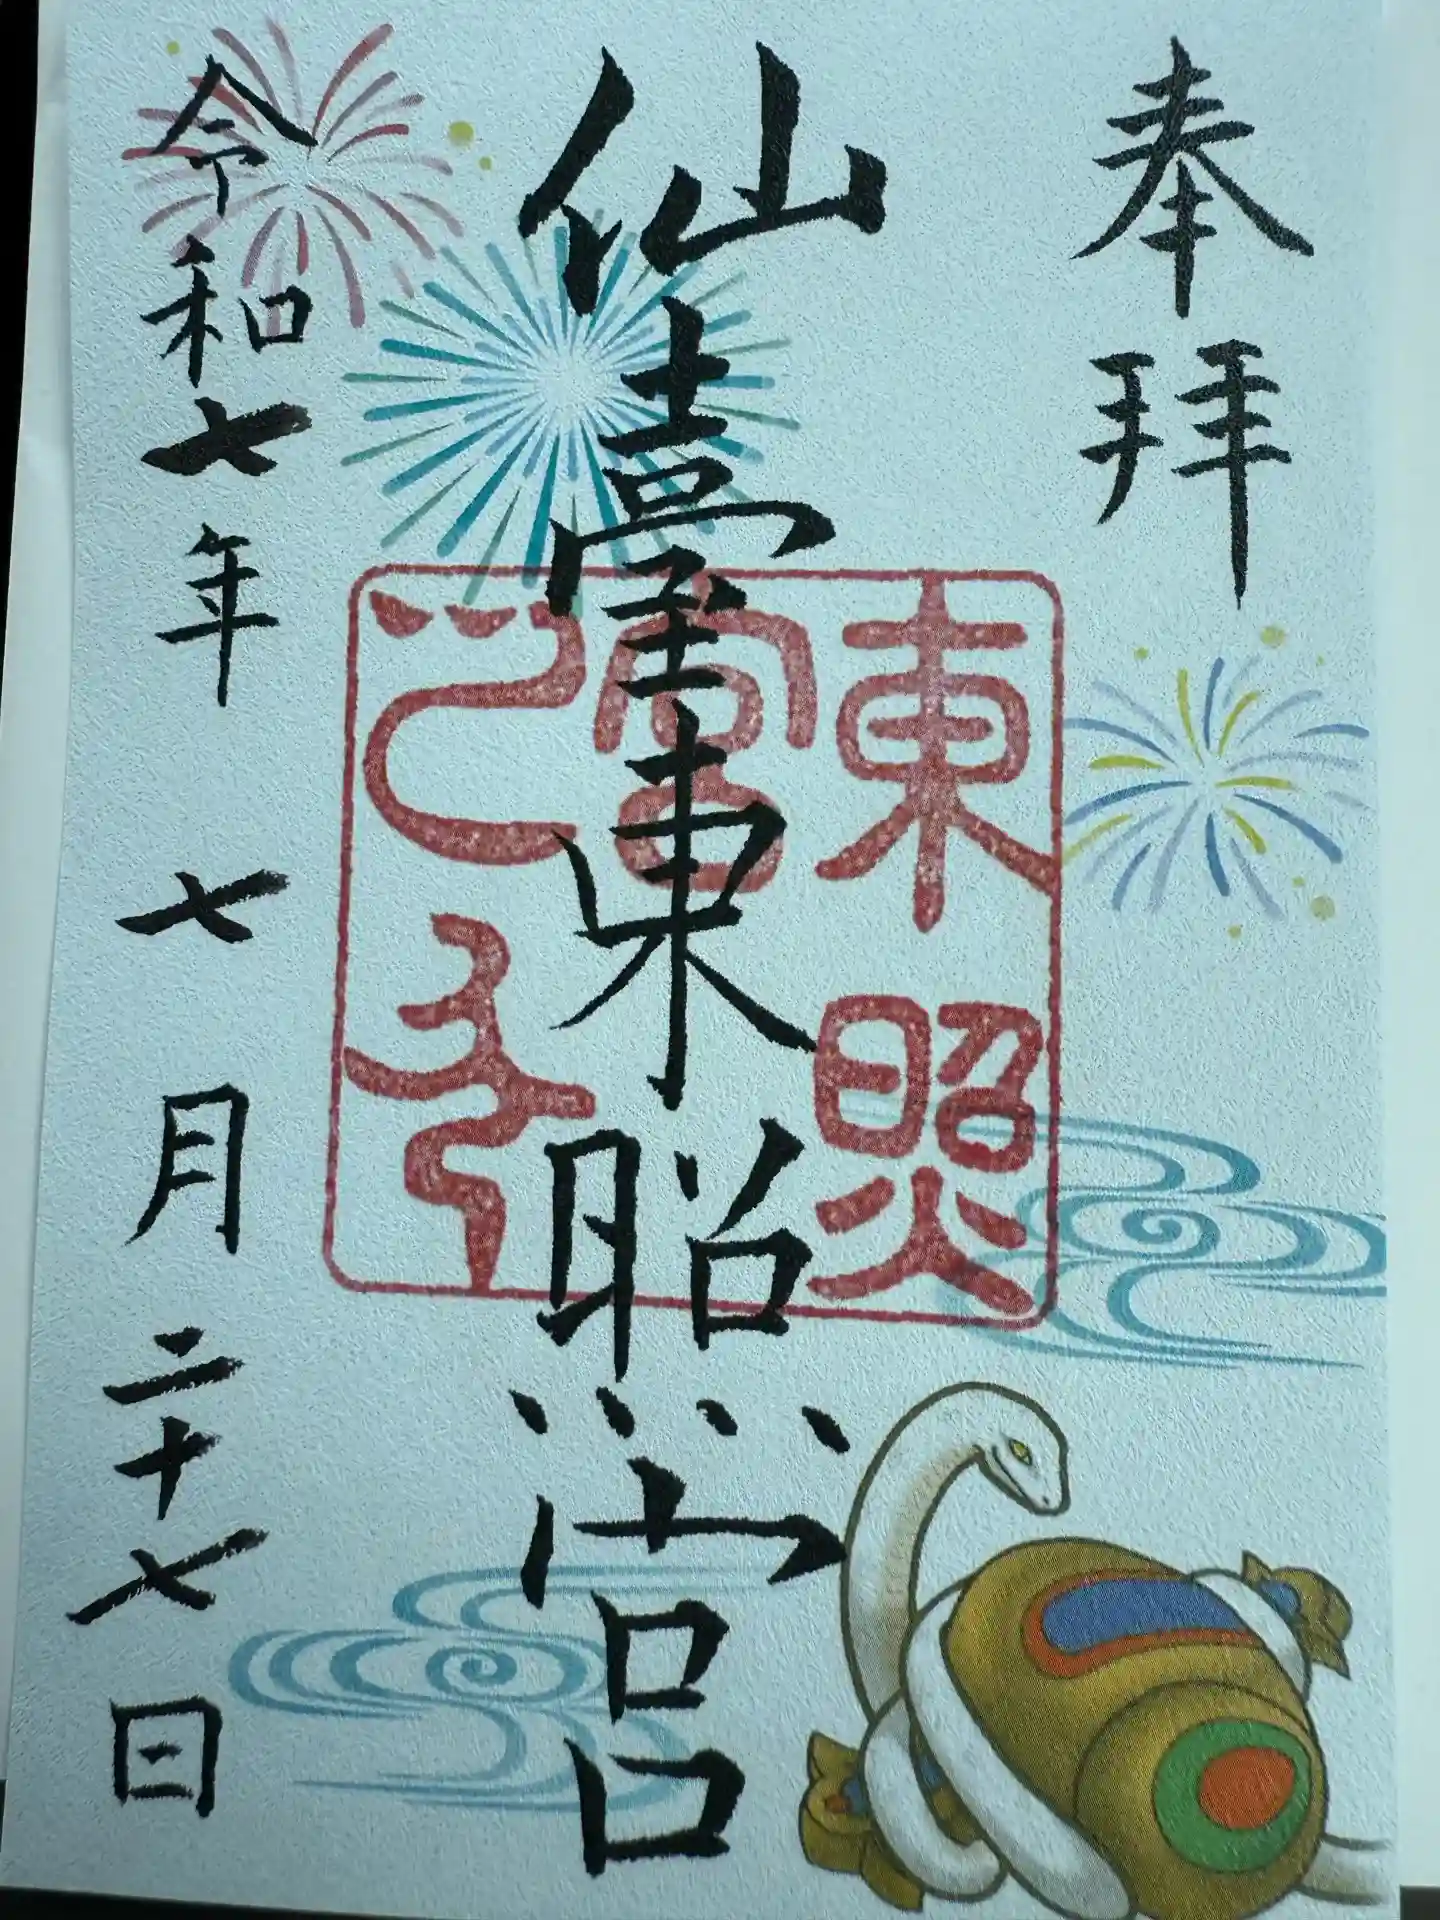 奉拝
仙臺東照宮
東照
宮
令和七年 七月二十七日